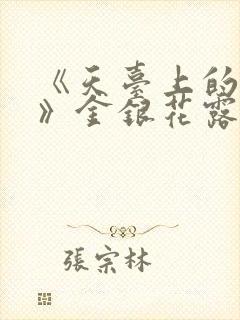 《天臺上的
》金銀花露
張宗林